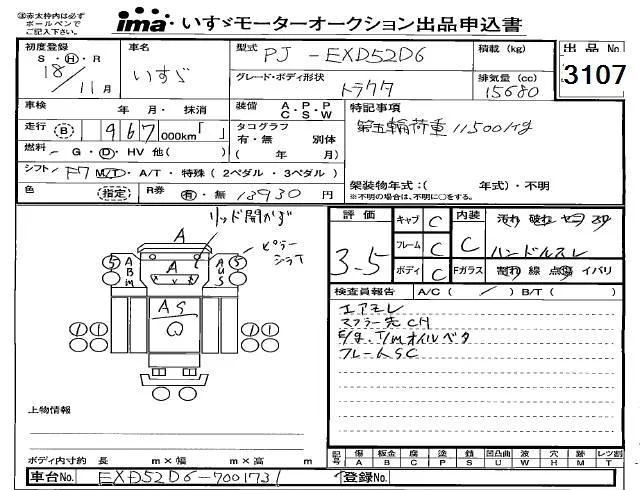 ㊟赤太枠内は必ず
ボールペンで
ご記入下さい。
ima・いすゞモーターオークション出品申込書
初度登録
S・H・R
18/11月
車名
いすゞ
型式 PJ-EXD52D6
グレード・ボディ形状
トラクタ
積載(kg)
排気量(cc)
15680
出品No.
3107
車検 年 月・抹消
走行 (B) 967,000km「 」
燃料 G・D・HV 他( )
シフト F7 M/D・A/T・特殊(2ペダル・3ペダル)
色 (指定) R券 有・無 13930円
装備 A・P・P C・S・W
タコグラフ
有・無 別体
( 年 月)
特記事項
第五輪荷重 11500kg
架装物年式:( 年式)・不明
※不明の場合は、不明に○をする。
リッド開かず
ピラー
シラT
A
A
5 A B M
A U S 5
AS
W
評価
3.5
キャブ C
フレーム C
ボディ C
内装 C
Fガラス
汚れ 破れ
ハンドルスレ
割れ 線 点傷 イバリ
検査員報告 A/C( / ) B/T( )
エアモレ
マフラー先CH
E/g.T/mオイルベタ
フレームSC
上物情報
ボディ内寸約 長 m×幅 m×高 m
記号 傷A 板金B 腐C 塗P 錆S 凹凸曲U 波W 穴H 跡M レンズ割T
車台No. EXD52D6-7001731
登録No.